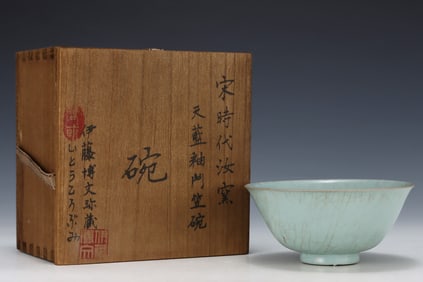 宋時代汝窯
天藍釉斗笠碗
碗
伊藤博文珍藏
いとうひろぶみ